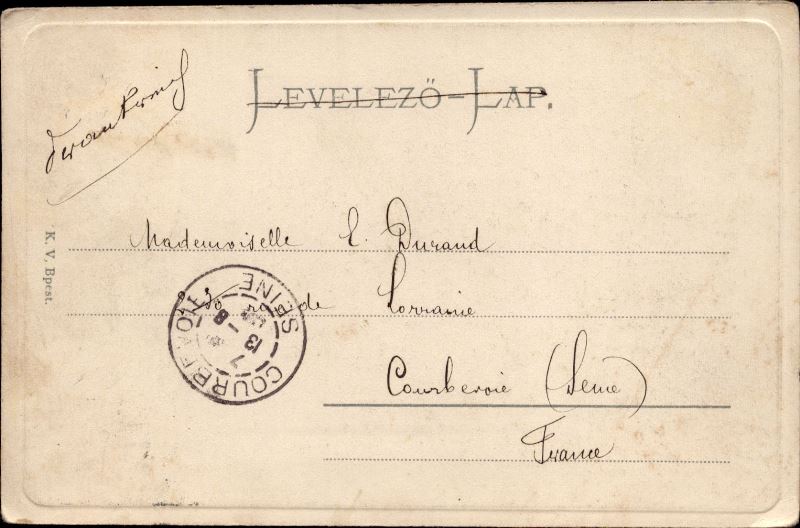 LEVELEZŐ-LAP.
Frankreich
Mademoiselle E. Durand
rue de Lorraine
Courbevoie (Seine)
France
K. V. Bpest.
COURBEVOIE
SEINE
7
13